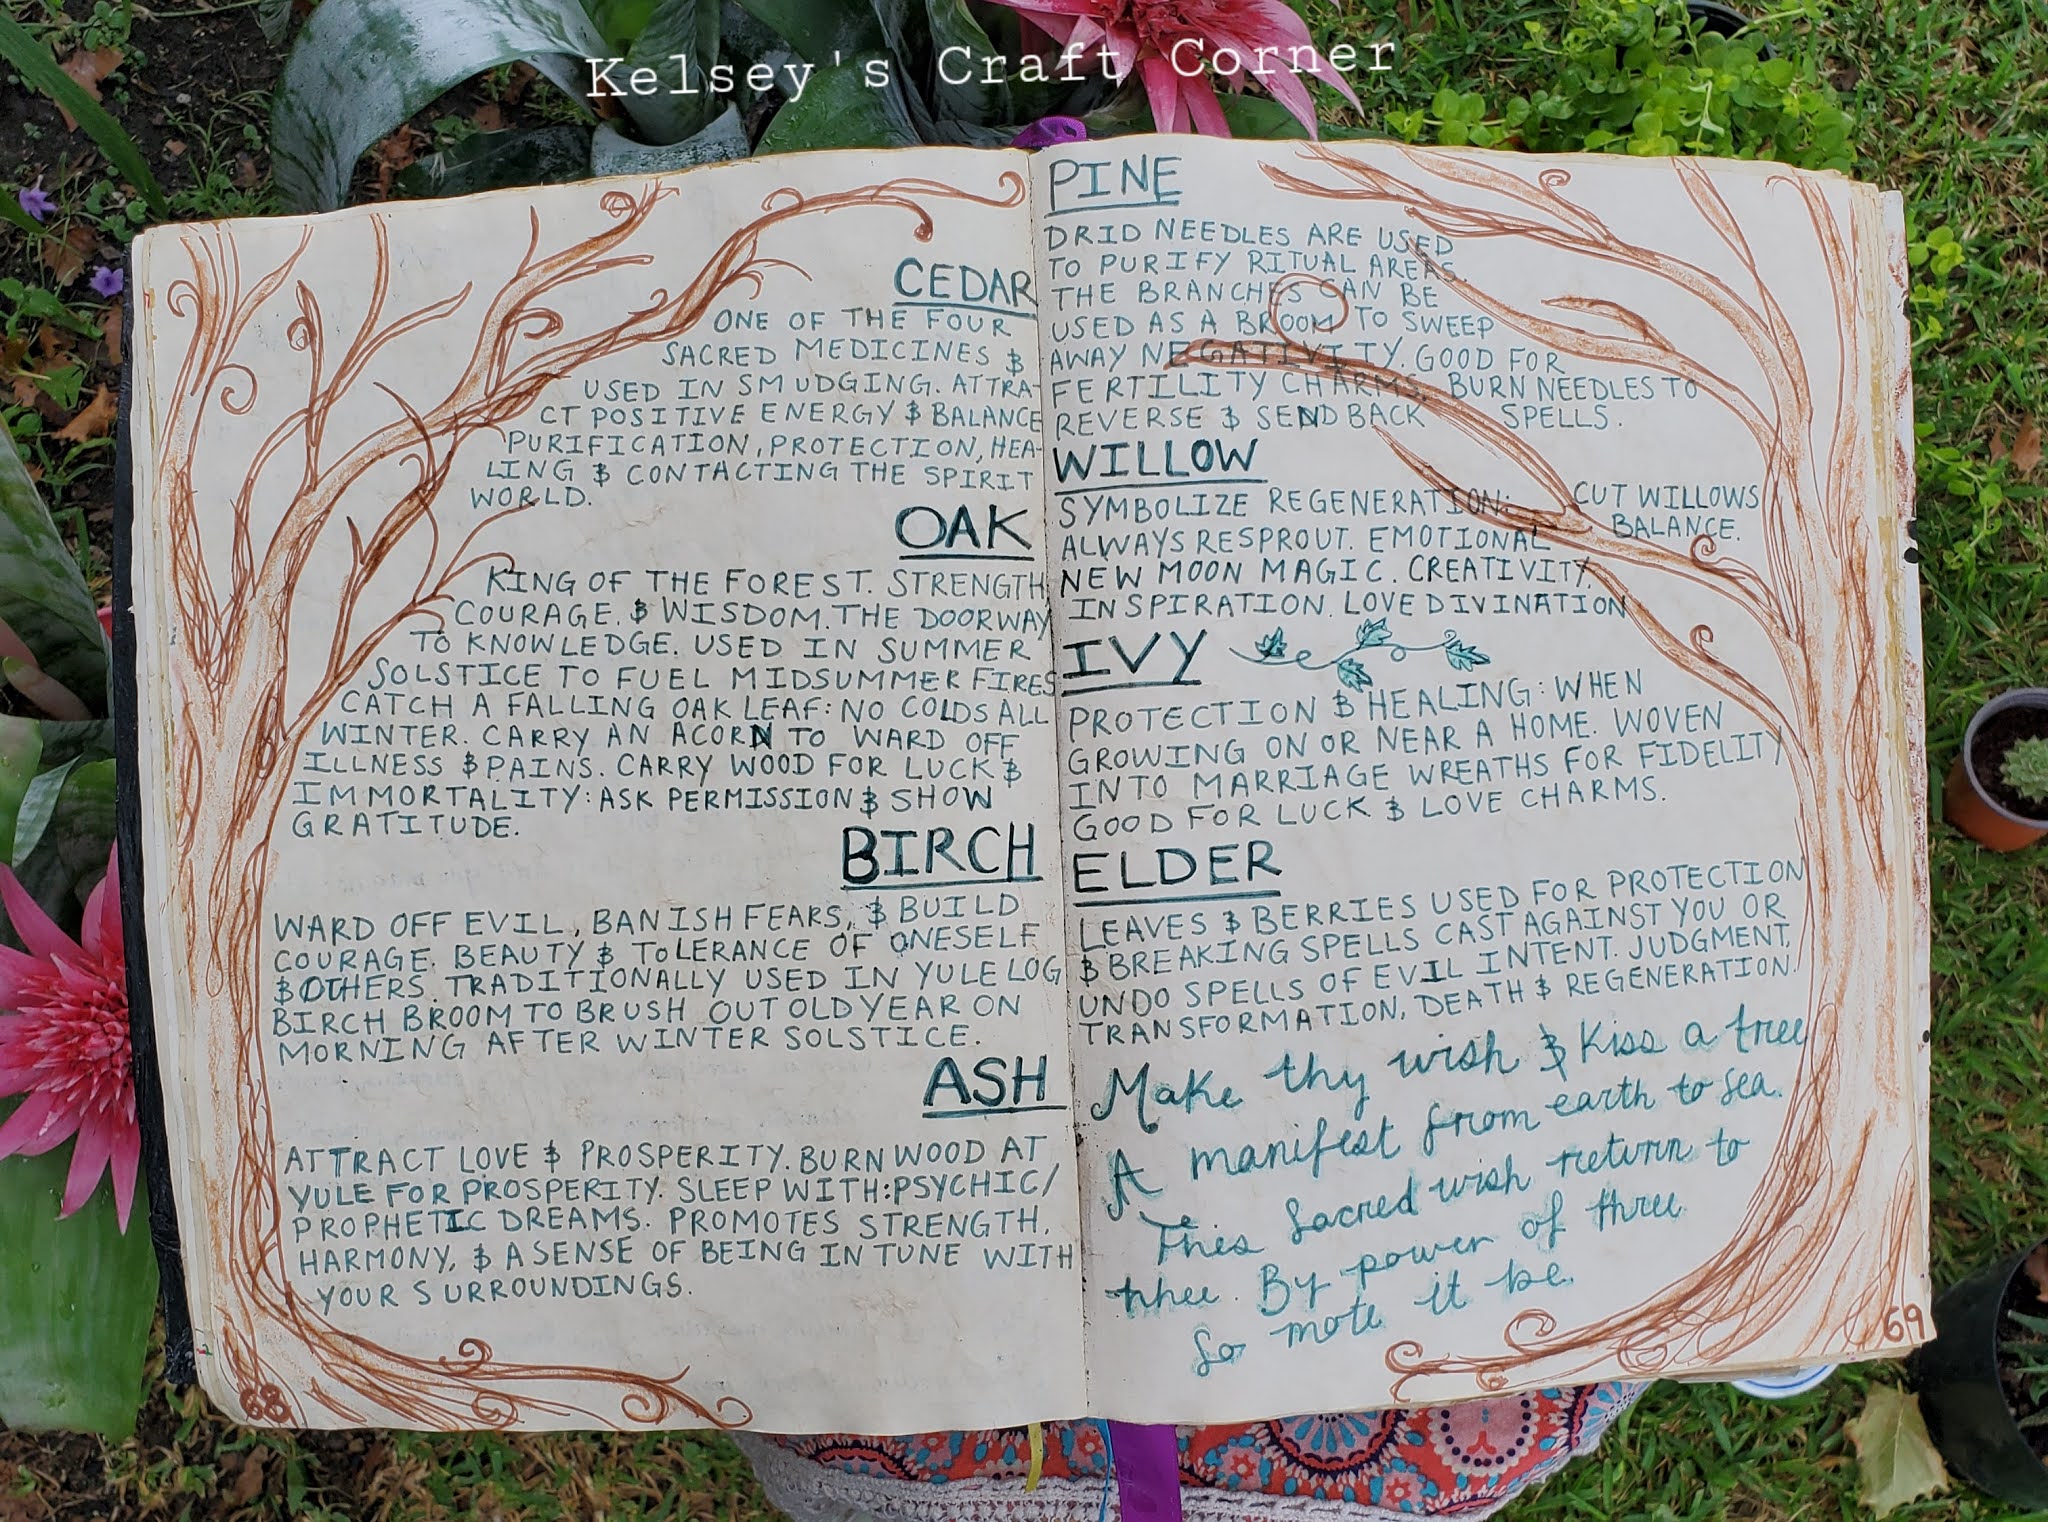 Kelsey's Craft Corner
CEDAR
ONE OF THE FOUR
SACRED MEDICINES &
USED IN SMUDGING. ATTRA-
CT POSITIVE ENERGY & BALANCE
PURIFICATION, PROTECTION, HEA-
LING & CONTACTING THE SPIRIT
WORLD.
OAK
KING OF THE FOREST. STRENGTH
COURAGE, & WISDOM. THE DOORWAY
TO KNOWLEDGE. USED IN SUMMER
SOLSTICE TO FUEL MIDSUMMER FIRES
CATCH A FALLING OAK LEAF: NO COLDS ALL
WINTER. CARRY AN ACORN TO WARD OFF
ILLNESS & PAINS. CARRY WOOD FOR LUCK &
IMMORTALITY: ASK PERMISSION & SHOW
GRATITUDE.
BIRCH
WARD OFF EVIL, BANISH FEARS, & BUILD
COURAGE. BEAUTY & TOLERANCE OF ONESELF
& OTHERS. TRADITIONALLY USED IN YULE LOG
BIRCH BROOM TO BRUSH OUT OLD YEAR ON
MORNING AFTER WINTER SOLSTICE.
ASH
ATTRACT LOVE & PROSPERITY. BURN WOOD AT
YULE FOR PROSPERITY. SLEEP WITH: PSYCHIC/
PROPHETIC DREAMS. PROMOTES STRENGTH,
HARMONY, & A SENSE OF BEING IN TUNE WITH
YOUR SURROUNDINGS.
68
PINE
DRID NEEDLES ARE USED
TO PURIFY RITUAL AREAS.
THE BRANCHES CAN BE
USED AS A BROOM TO SWEEP
AWAY NEGATIVITY. GOOD FOR
FERTILITY CHARMS. BURN NEEDLES TO
REVERSE & SEND BACK SPELLS.
WILLOW
SYMBOLIZE REGENERATION: CUT WILLOWS
ALWAYS RESPROUT. EMOTIONAL BALANCE.
NEW MOON MAGIC. CREATIVITY,
INSPIRATION. LOVE DIVINATION
IVY
PROTECTION & HEALING: WHEN
GROWING ON OR NEAR A HOME. WOVEN
INTO MARRIAGE WREATHS FOR FIDELITY
GOOD FOR LUCK & LOVE CHARMS.
ELDER
LEAVES & BERRIES USED FOR PROTECTION
& BREAKING SPELLS CAST AGAINST YOU OR
UNDO SPELLS OF EVIL INTENT. JUDGMENT,
TRANSFORMATION, DEATH & REGENERATION.
Make thy wish & Kiss a tree
A manifest from earth to sea.
This sacred wish return to
thee. By power of three
So mote it be.
69